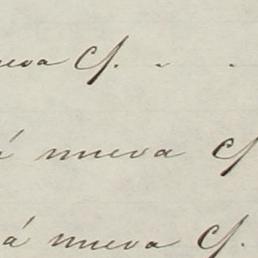 nueva C/. . .
á nueva C/
á nueva C/.